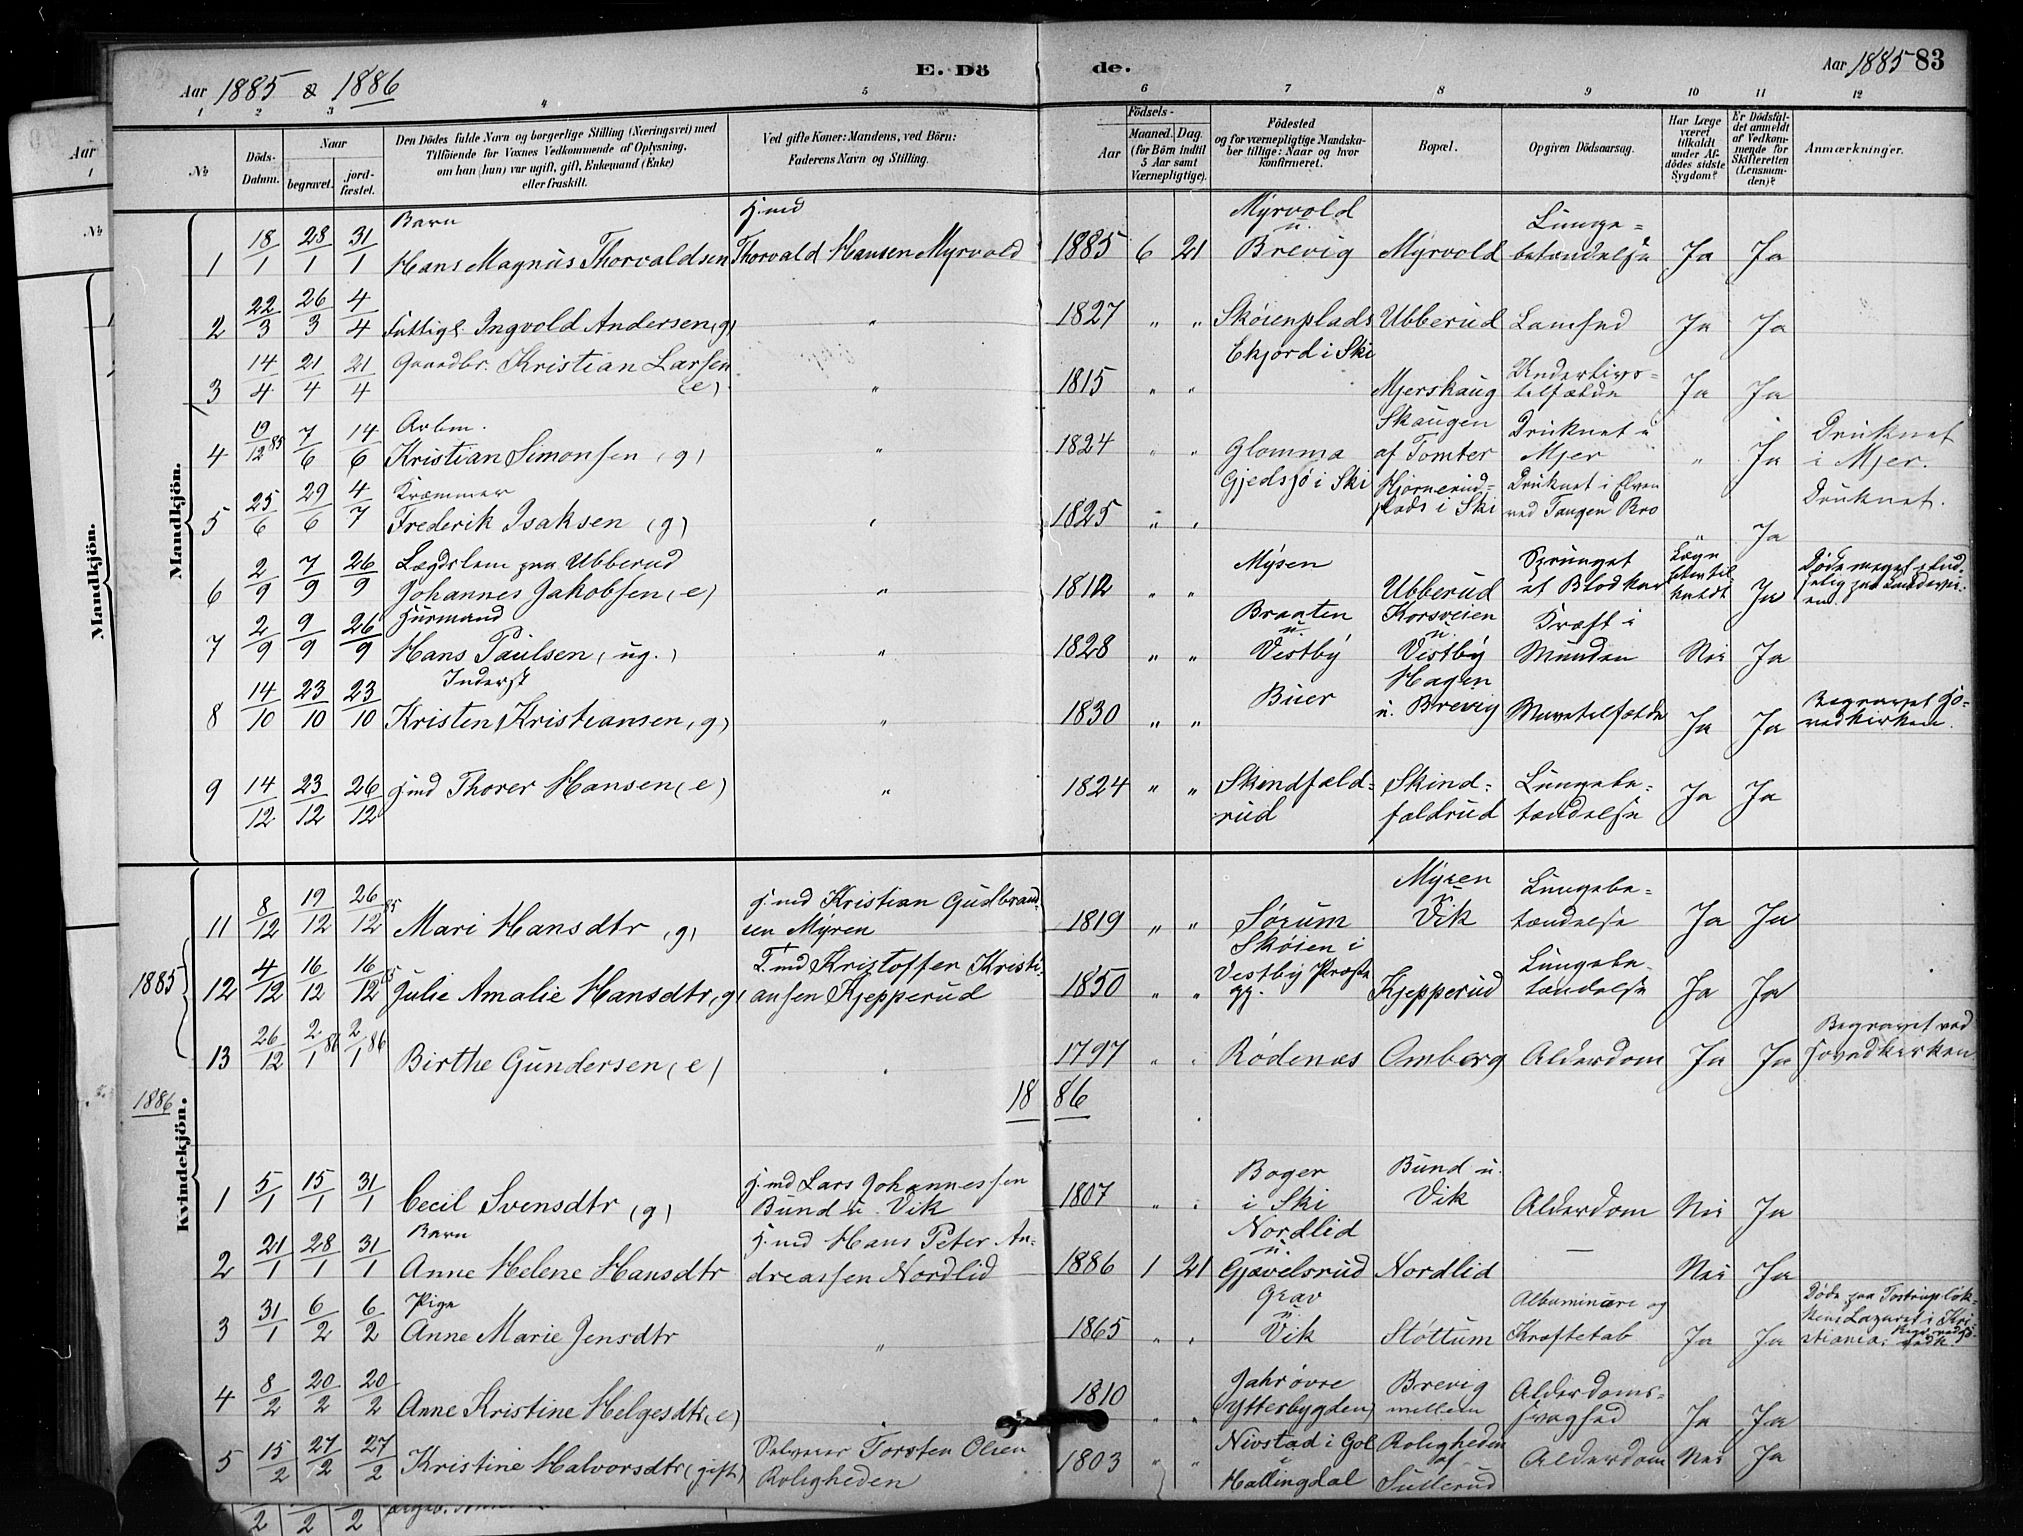 Aar 1885 & 1886
E. Dö
de.
Aar 1885 83
1 2 3 4 5 6 7 8 9 10 11 12
№
Döds-Datum.
Naar
begravet.
jord-fæstet.
Den Dödes fulde Navn og borgerlige Stilling (Næringsvei) med
Tilföiende for Voxnes Vedkommende af Oplysning,
om han (hun) var ugift, gift, Enkemand (Enke)
eller fraskilt.
Ved gifte Koner: Mandens, ved Börn:
Faderens Navn og Stilling.
Födsels-
Aar
Maaned. Dag.
(for Börn indtil
5 Aar samt
Værnepligtige).
Födested
og for værnepligtige Mandska-
ber tillige: Naar og hvor
konfirmeret.
Bopæl.
Opgiven Dödsaarsag.
Har Læge
været
tilkaldt
under Af-
dödes sidste
Sygdom?
Er Dödsfal-
det anmeldt
af Vedkom-
mende for
Skifteretten
(Lensman-
den)?
Anmærkninger.
Mandkjön.
Barn
Hmd
Myrvold
u.
Lunge-
1 18/1 28/1 31/1 Hans Magnus Thorvaldsen Thorvald Hansen Myrvold 1885 6 21 Brevig Myrvold betændelse Ja Ja
2 22/3 26/3 4/4 Fattigl. Ingvold Andersen (g) " 1827 " " Skøienplads Ubberud Lamhed Ja Ja
Ekjord i Ski
3 14/4 21/4 21/4 Gaardbr. Kristian Larsen (e) " 1815 " " Mjerskaug Underlivs-
tilfælde Ja Ja
Arbm.
Skaugen
4 19/12 85 7/6 14/6 Kristian Simonsen (g) " 1824 " " Glomma af Tomter Druknet i
Mjer " Ja Druknet
i Mjer.
Kræmmer
5 25/6 29/6 4/7 Frederik Isaksen (g) " 1825 " " Gjedsjø i Ski Hjornerud-
plads i Ski Druknet i Elven
ved Tangen Bro Ja Druknet.
Lægdslem paa Ubberud
6 2/9 7/9 26/9 Johannes Jakobsen (e) " 1812 " " Mysen Ubberud Sprunget
et Blodkar Ja
Huusmand
7 2/9 9/9 26/9 Hans Paulsen (ug.) " 1828 " " Braaten
u.
Vestby Korsveien
u.
Vestby Kræft i
Munden Nei Ja
Inderst
8 14/10 23/10 23/10 Kristen Kristiansen (g) " 1830 " " Buer Hagen
u. Brevig Mavetilfælde Ja Ja Begravet Ho-
vedkirken.
9 14/12 23/12 26/12 Hmd Thorer Hansen (e) " 1824 " " Skindfæld-
rud Skind-
fældrud Lungebe-
tændelse Ja Ja
Kvindekjön.
1885
11 8/12 19/12 26/12 85 Mari Hansdtr (g) Hmd Kristian Gudbrand-
sen Myren 1819 " " Sørum Myren
u.
Vik Lungebe-
tændelse Ja Ja
12 4/12 16/12 16/12 85 Julie Amalie Hansdtr (g) F.md Kristoffer Kristi-
ansen Kjepperud 1850 " " Skøien i
Vestby Præste
gj. Kjepperud Lungebe-
tændelse Ja Ja
13 26/12 2/1 86 2/1 86 Birthe Gundersen (e) " 1797 " " Rødenæs Omberg Alderdom Ja Ja Begravet ved
Hovedkirken
1886
18 86
1 5/1 15/1 31/1 Cecil Svensdtr (g) Hmd Lars Johannessen
Bund u. Vik 1807 " " Boger
i Ski Bund u.
Vik Alderdom Nei Ja
Barn
2 21/1 28/1 31/1 Anne Helene Hansdtr Hmd Hans Peter An-
dreassen Nordlid 1886 1 21 Nordlid
u.
Gjævelsrud Nordlid — Nei Ja
Pige
3 31/1 6/2 6/2 Anne Marie Jensdtr " 1865 " " Grav
u.
Vik Støttum Albuminuri og
Kræftetab Ja Ja Døde paa Tostrupløk-
kens Lazaret i Kri-
stiania.
4 8/2 20/2 20/2 Anne Kristine Helgesdtr (e) " 1810 " " Jahr øvre
(ytterbygden) Brevig
mellem Alderdoms-
svaghed Ja Ja
5 15/2 27/2 27/2 Kristine Halvorsdtr (gift) Selveier Torsten Olsen
Roligheden 1803 " " Nivstad i Gol
i
Hallingdal Roligheden
af
Sullerud Alderdom Nei Ja
Aar
1
№
Mandkjön.
2 2 2